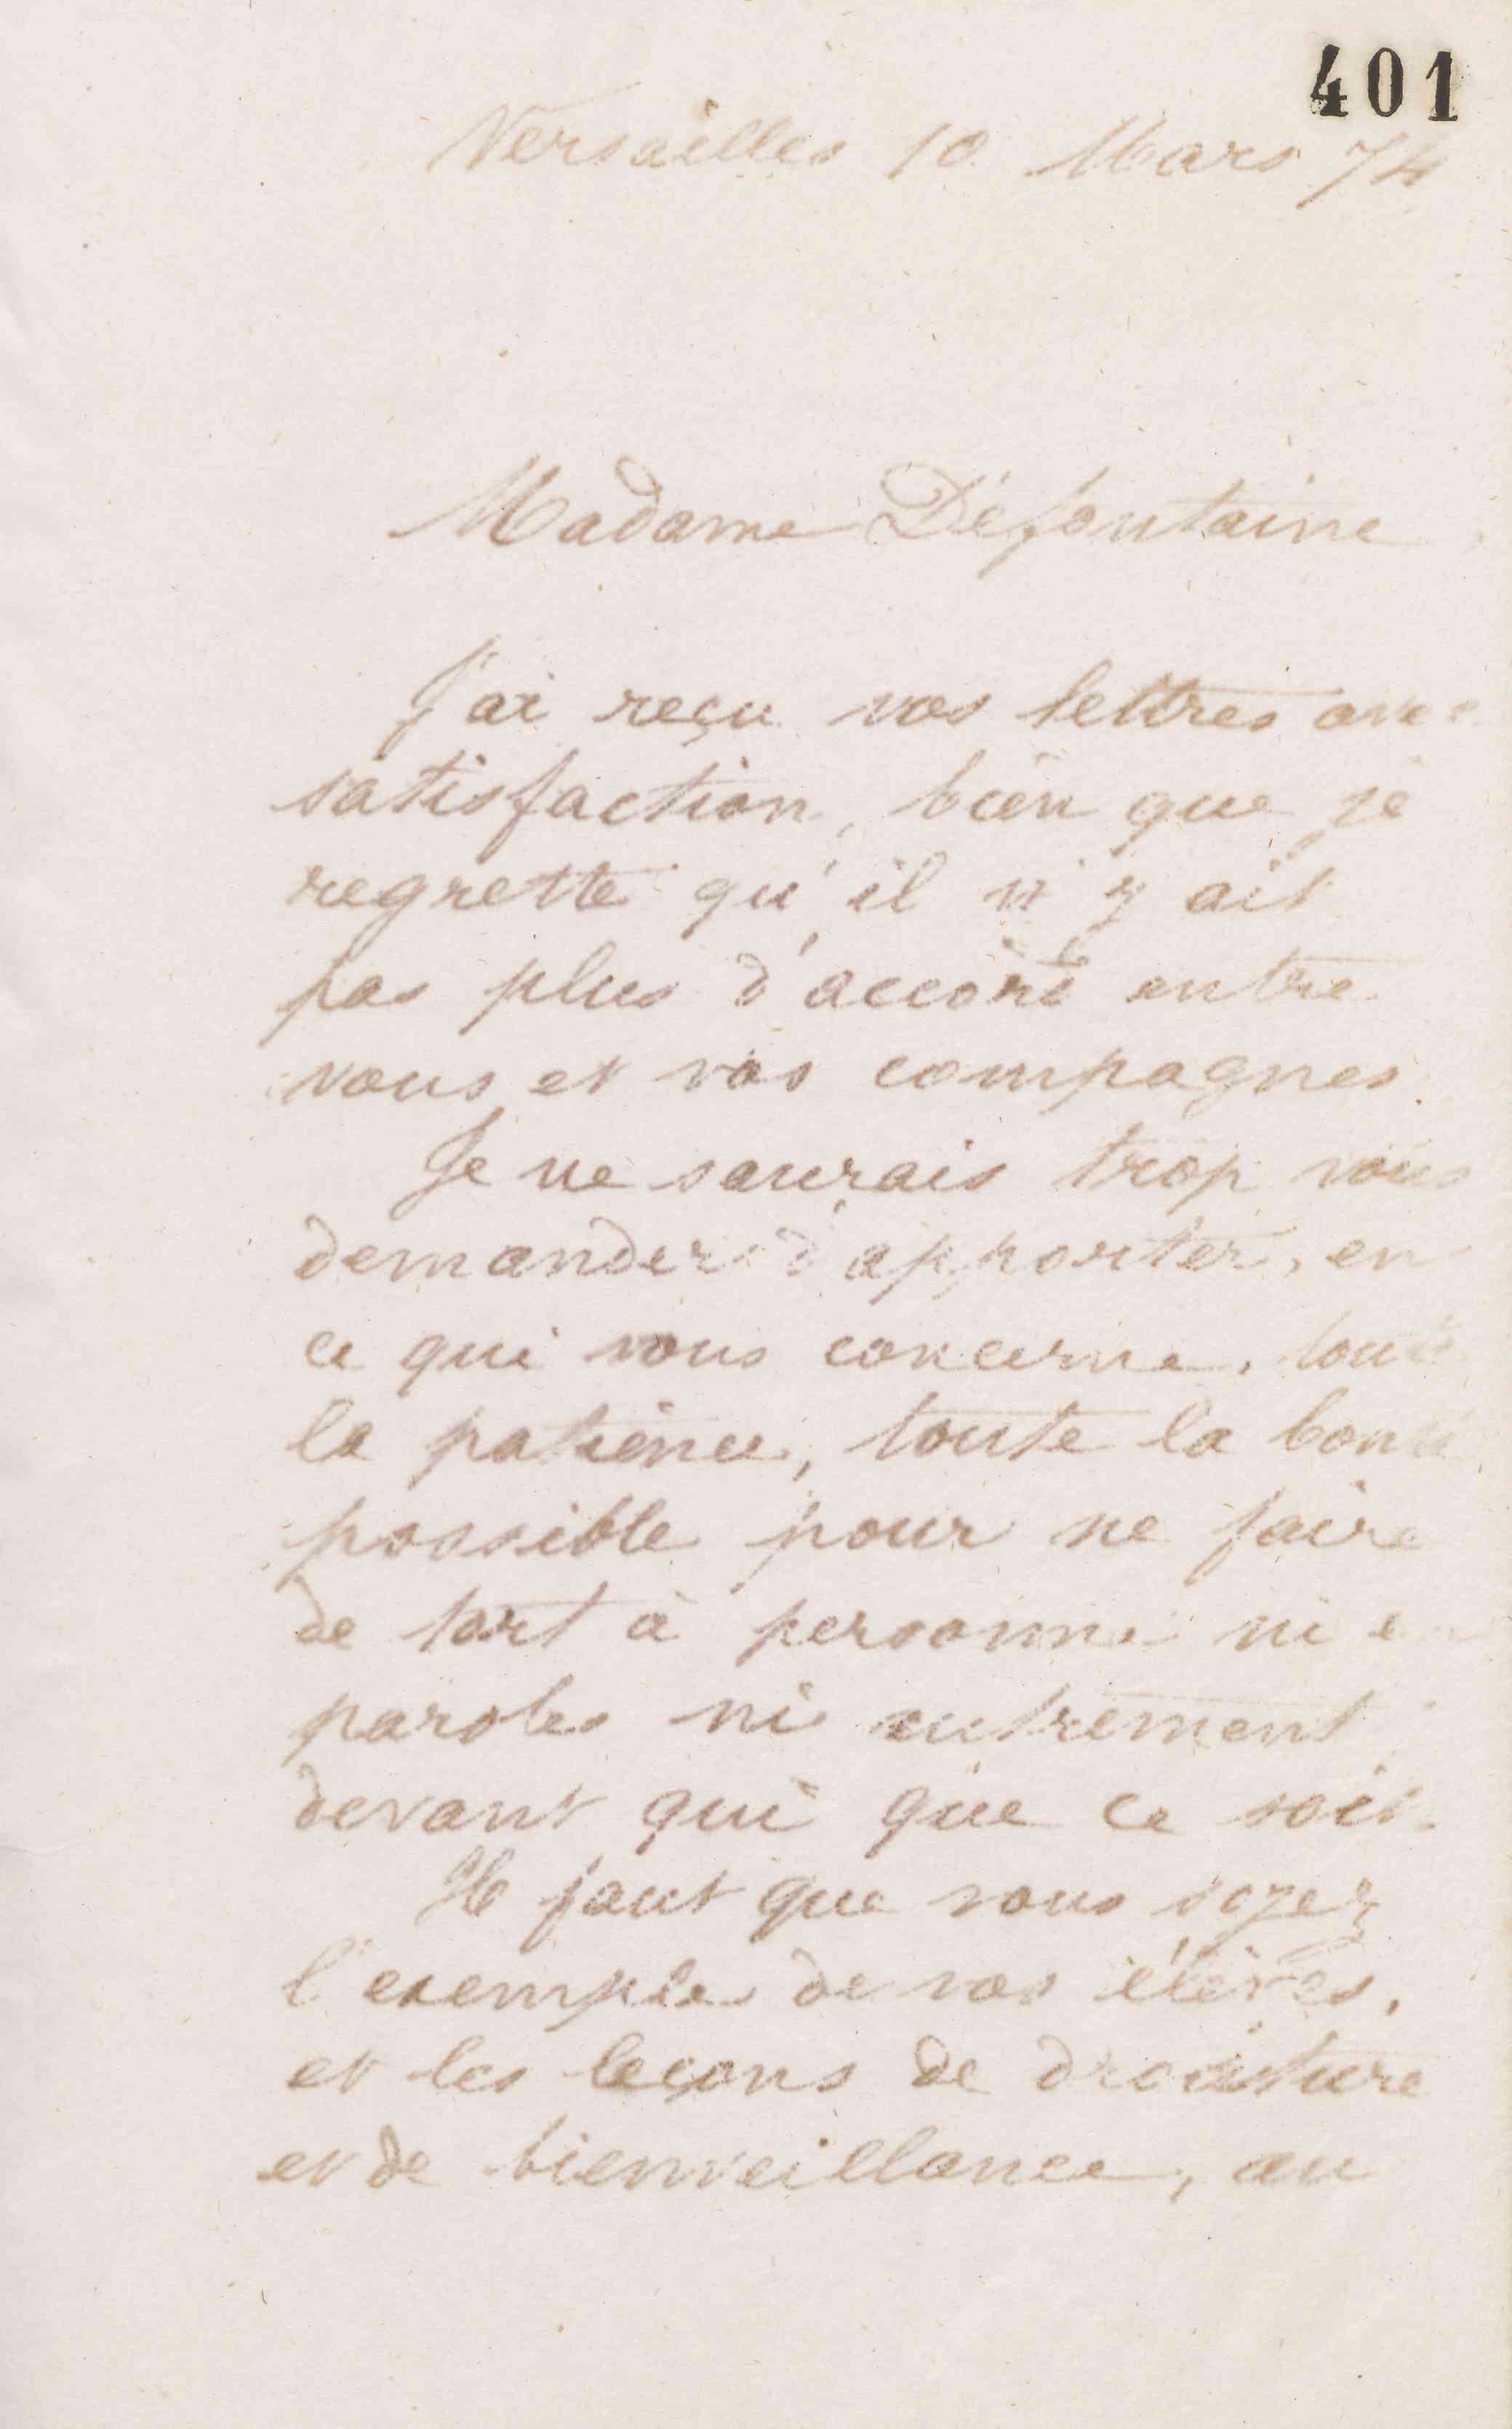 401
Versailles 10 Mars 74
Madame Défontaine
J'ai reçu vos lettres avec
satisfaction, bien que je
regrette qu'il n'y ait
pas plus d'accord entre
vous et vos compagnes
Je ne saurais trop vous
demander d'apporter, en
ce qui vous concerne, toute
la patience, toute la bonté
possible pour ne faire
de tort à personne ni
paroles ni autrement
devant qui que ce soit.
Il faut que vous soyez
l'exemple de vos élèves,
et les leçons de droiture
et de bienveillance, au